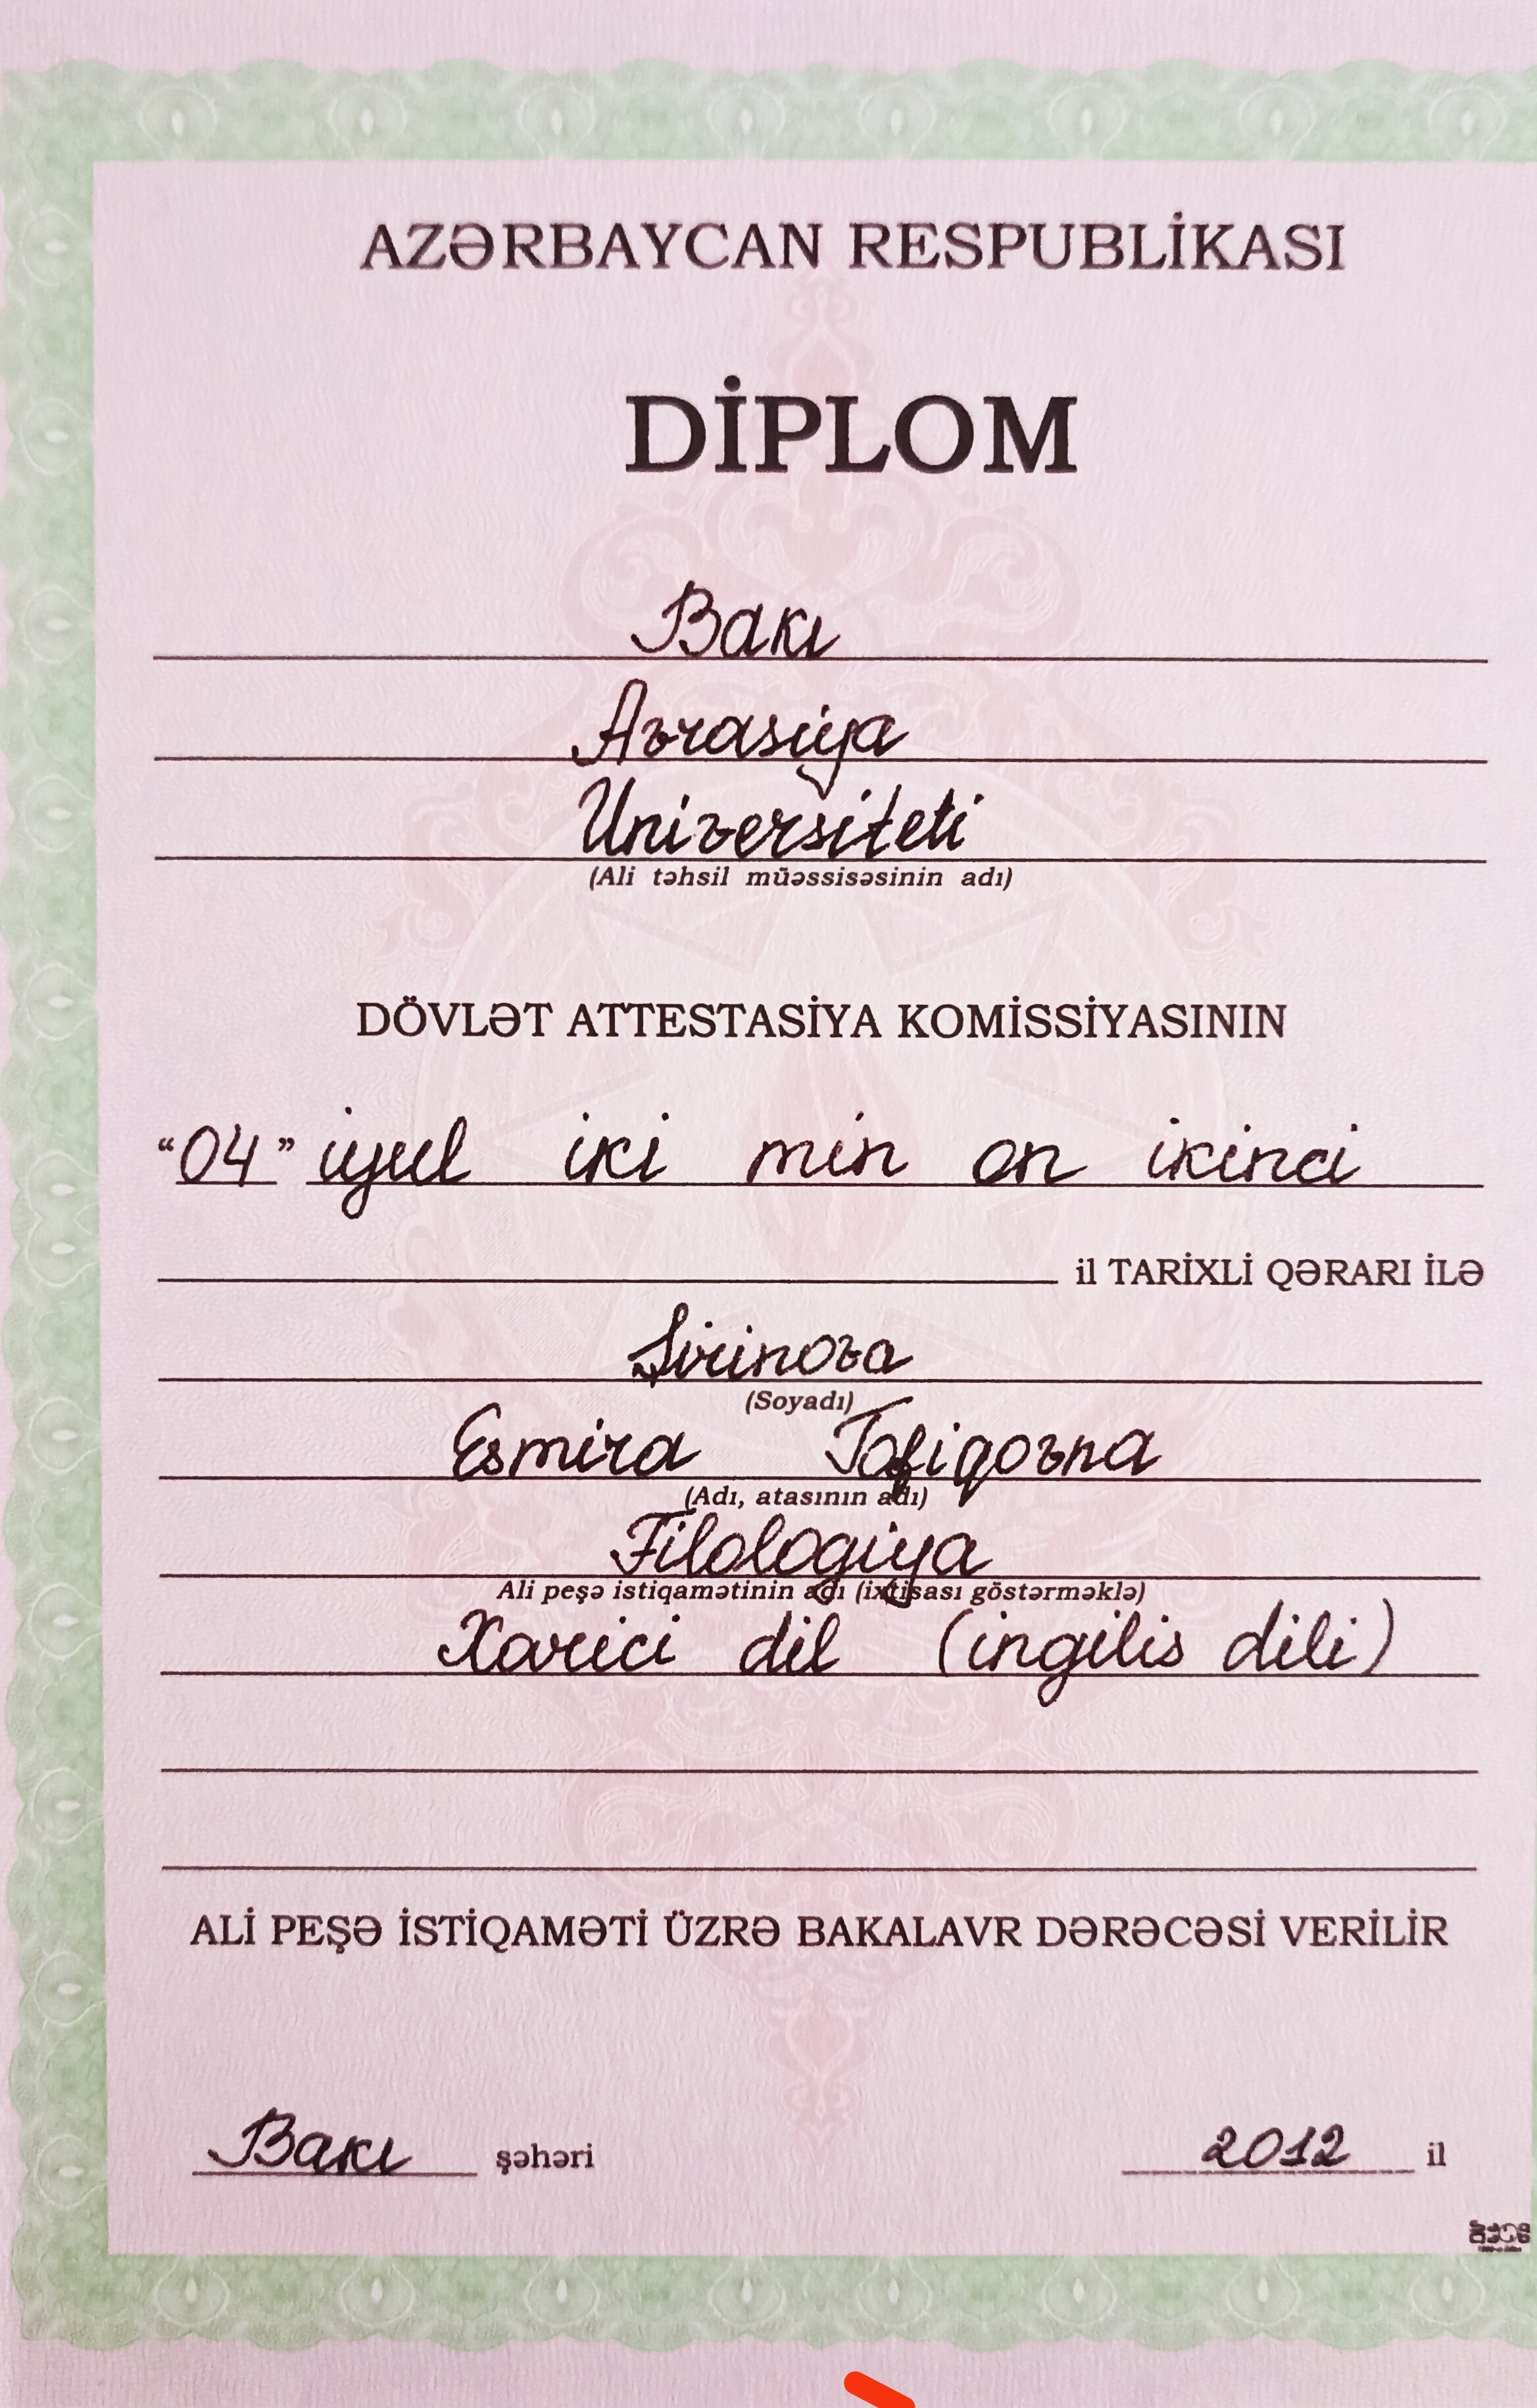 AZƏRBAYCAN RESPUBLİKASI
DİPLOM
Bakı
Avrasiya
Universiteti
(Ali təhsil müəssisəsinin adı)
DÖVLƏT ATTESTASİYA KOMİSSİYASININ
"04" iyul iki min on ikinci
il TARİXLİ QƏRARI İLƏ
Şirinova
(Soyadı)
Esmira Tofiqovna
(Adı, atasının adı)
Filologiya
Ali peşə istiqamətinin adı (ixtisası göstərməklə)
Xarici dil (ingilis dili)
ALİ PEŞƏ İSTİQAMƏTİ ÜZRƏ BAKALAVR DƏRƏCƏSİ VERİLİR
Bakı şəhəri 2012 il